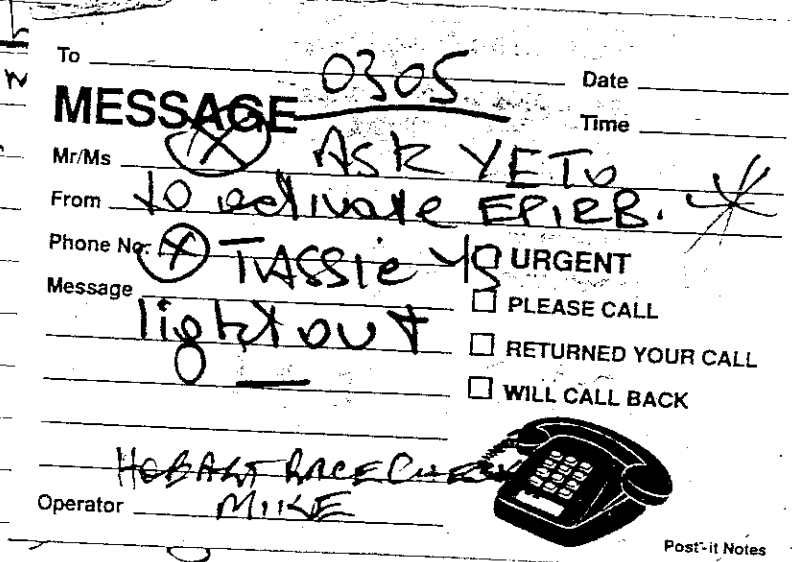 To 0305 Date
MESSAGE Time
Mr/Ms Ask YETO
From to activate EPIRB.
Phone No: X TASSIE
URGENT
Message light out
PLEASE CALL
RETURNED YOUR CALL
WILL CALL BACK
HOBART RACE
Operator MIKE
Post-it Notes